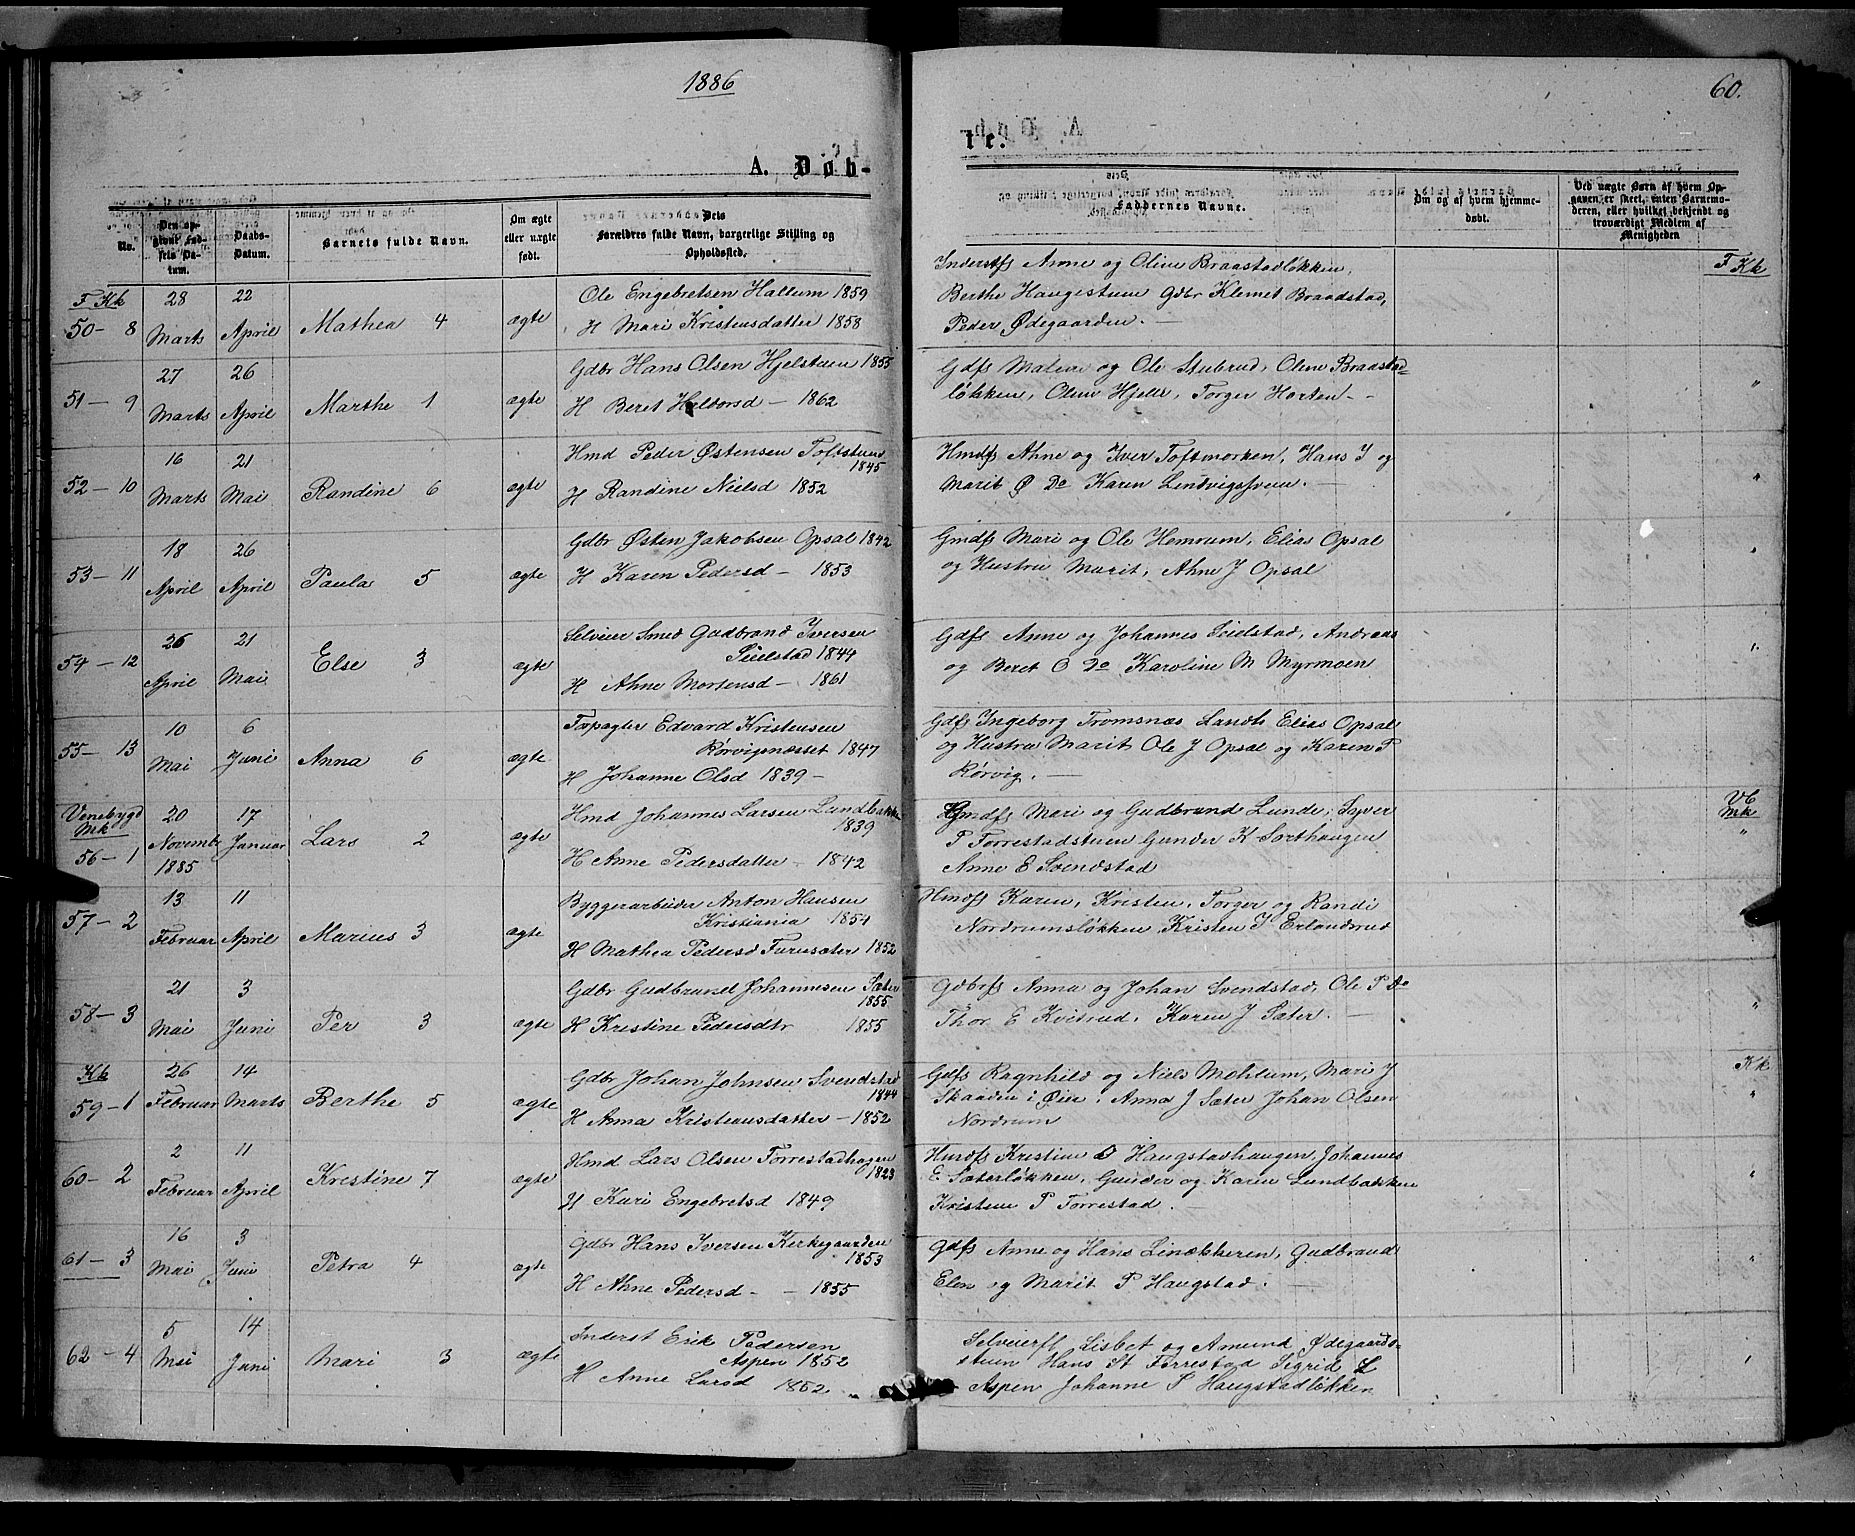 1886
60.
A. Døb-
te.
No.
Den op-
givne Fød-
sels Da-
tum.
Daabs-
Datum.
Barnets fulde Navn.
Om ægte
eller uægte
født.
Dets
Forældres fulde Navn, borgerlige Stilling og
Opholdssted.
Faddernes Navne.
Om og af hvem hjemme-
døbt.
Ved uægte Børn af hvem Op-
gaven er skeet, enten Barnemo-
deren, eller hvilket bekjendt og
troværdigt Medlem af
Menigheden
F Kk
50 - 8
28
Marts
22
April
Mathea 4
ægte
Ole Engebretsen Hallum 1859
H Mari Kristensdatter 1858
Inderstfs Anne og Oline Braastadløkken,
Berthe Haugestuen Gdbr Klemet Braadstad,
Peder Ødegaarden. —
F Kk
51 - 9
27
Marts
26
April
Marthe 1
ægte
Gdbr Hans Olsen Hjelstuen 1855
H Beret Halvorsd — 1862
Gdfs Matea og Ole Stubrud, Olene Braastad=
løkken, Oline Hjelle, Torger Horten - -
"
52 - 10
16
Marts
21
Mai
Randine 6
ægte
Hmd Peder Østensen Toftstuen
1845
H Randine Nielsd 1852
Hmdfs Ahne og Iver Toftmorken, Hans I og
Marit Ø Do Karen Lindvigssveen. —
"
53 - 11
18
April
26
April
Paula 5
ægte
Gdbr Østen Jakobsen Opsal 1842
H Karen Pedersd — 1853
Gmdfs Mari og Ole Hemrum, Elias Opsal
og Hustru Marit, Ahne J Opsal
"
54 - 12
26
April
21
Mai
Else 3
ægte
Selveier Smed Gudbrand Iversen
Seielstad 1844
H Ahne Mortensd — 1861
Gdfs Anne og Johannes Seielstad, Andreas
og Beret O Do Karoline M Myrmoen
"
55 - 13
10
Mai
6
Juni
Anna 6
ægte
Forpagter Edvard Kristensen
Rørvignæsset 1847
H Johanne Olsd 1839 —
Gdfs Ingeborg Tromsnæs Landh Elias Opsal
og Hustru Marit Ole J Opsal og Karen P
Rørvig. —
Venebygd
Mk
56 - 1
20
Novembr
1885
17
Januar
Lars 2
ægte
Hmd Johannes Larsen Lundbakken
1839
H Anne Pedersdatter - 1842
Hmdfs Mari og Gudbrand Lunde, Syver
P Forrestadstuen Gunder K Sorthaugen
Anne E Svendstad
Vb
Mk
"
57 - 2
13
Februar
11
April
Marius 3
ægte
Byggerarbeider Anton Hansen
Kristiania 1854
H Mathea Pedersd Furusæter 1852
Hmdfs Karen, Kristen, Torger og Randi
Nordrumsløkken, Kristen S Erlandsrud
58 - 3
21
Mai
3
Juni
Per 3
ægte
Gdbr Gudbrand Johannesen Sæter
1855
H Kristine Pedersdtr 1855
Gdbrfs Anna og Johan Svendstad, Ole P Do
Thor E Kvitrud, Karen J Sæter. —
"
Kk
59 - 1
26
Februar
14
Marts
Berthe 5
ægte
Gdbr Johan Johnsen Svendstad
1844
H Anna Kristiansdatter - 1852
Gdfs Ragnhild og Niels Mehlum, Mari J
Skaaden i Øier, Anna J Sæter Johan Olsen
Nordrum
Kk
"
60 - 2
2
Februar
11
April
Kristine 7
ægte
Hmd Lars Olsen Forrestadhagen
1823
H Kari Engebretsd 1849
Hmdfs Kristine O Haugstadhaugen, Johannes
E Sæterløkken, Gunder og Karen Lundbakken
Kristine P Forrestad. —
"
61 - 3
16
Mai
3
Juni
Petra 4
ægte
Gdbr Hans Iversen Kirkegaarden
1853
H Ahne Pedersd - - 1855
Gdfs Anne og Hans Linækkeren, Gudbrand
Elen og Marit P Haugstad. —
"
62 - 4
5
Mai
14
Juni
Mari 3
ægte
Inderst Erik Pedersen
Aspen 1852
H Anne Larsd 1852
Selveierfs Lisbet og Amund Ødegaards-
stuen Hans St Forrestad Sigrid L
Aspen Johanne P Haugstadløkken
"